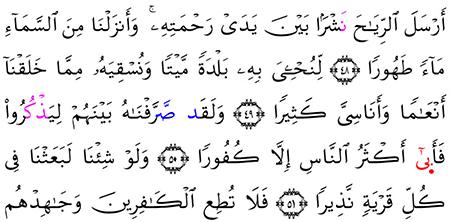 أَرْسَلَ ٱلرِّيَٰحَ نَشْرًۢا بَيْنَ يَدَىْ رَحْمَتِهِۦۚ وَأَنزَلْنَا مِنَ ٱلسَّمَآءِ
مَآءً طَهُورًا ۝٤٨ لِّنُحْـِۧىَ بِهِۦ بَلْدَةً مَّيْتًا وَنُسْقِيَهُۥ مِمَّا خَلَقْنَآ
أَنْعَٰمًا وَأَنَاسِىَّ كَثِيرًا ۝٤٩ وَلَقَد صَّرَّفْنَٰهُ بَيْنَهُمْ لِيَذْكُرُوا۟
فَأَبَىٰٓ أَكْثَرُ ٱلنَّاسِ إِلَّا كُفُورًا ۝٥٠ وَلَوْ شِئْنَا لَبَعَثْنَا فِى
كُلِّ قَرْيَةٍ نَّذِيرًا ۝٥١ فَلَا تُطِعِ ٱلْكَٰفِرِينَ وَجَٰهِدْهُم